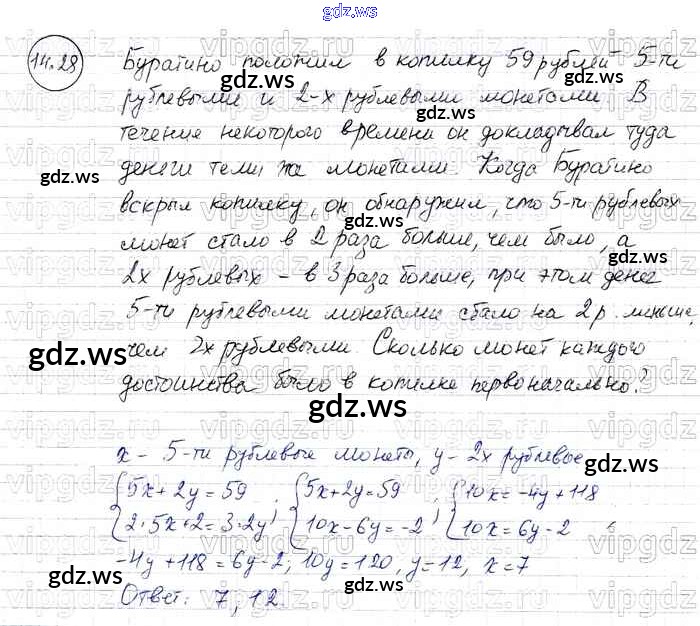 gdz.ws
14.28
Буратино положил в копилку 59 рублей 5-ти
рублевыми и 2-х рублевыми монетами. В
течение некоторого времени он докладывал туда
деньги теми же монетами. Когда Буратино
вскрыл копилку, он обнаружил, что 5-ти рублевых
монет стало в 2 раза больше, чем было, а
2х рублевых – в 3 раза больше, при этом денег
5-ти рублевыми монетами стало на 2 р. меньше,
чем 2х рублевыми. Сколько монет каждого
достоинства было в копилке первоначально?
x – 5-ти рублевые монеты, y – 2х рублевые
{5x+2y=59 ; {5x+2y=59 ; {10x=-4y+118
{2·5x+2=3·2y {10x-6y=-2 {10x=6y-2
-4y+118=6y-2, 10y=120, y=12, x=7
Ответ: 7, 12.
gdz.ws
vipgdz.ru